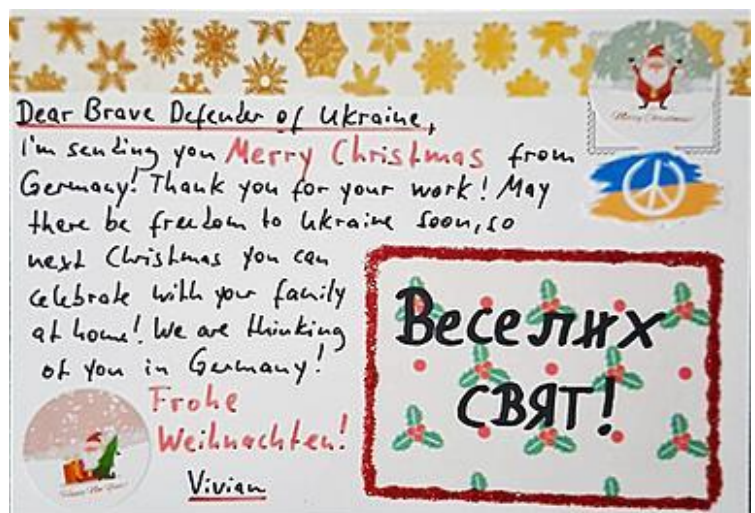 Merry Christmas
Dear Brave Defender of Ukraine,
I'm sending you Merry Christmas from
Germany! Thank you for your work! May
there be freedom to Ukraine soon, so
next Christmas you can
celebrate with your family
at home! We are thinking
of you in Germany!
Frohe
Weihnachten!
Vivian
Веселих
СВЯТ!
Happy New Year!